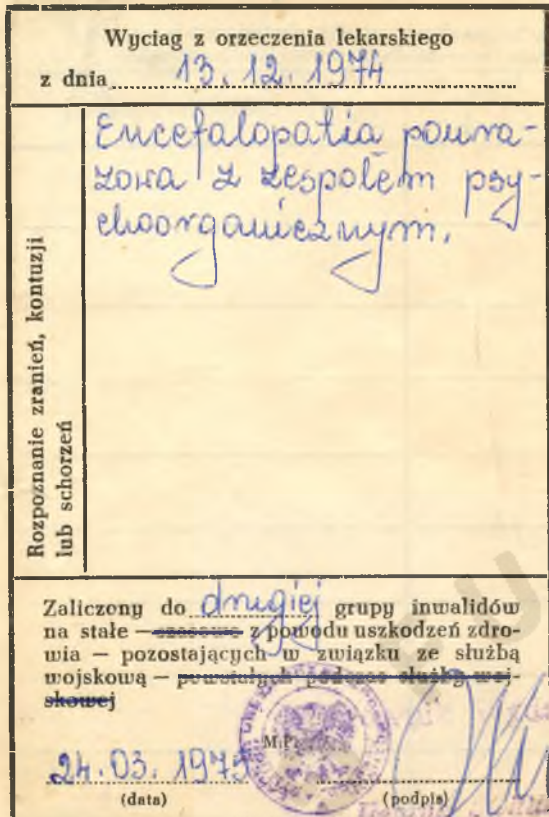 Wyciąg z orzeczenia lekarskiego
z dnia 13.12.1974
Rozpoznanie zranień, kontuzji
lub schorzeń
Encefalopatia poura-
zowa z zespołem psy-
choorganicznym.
Zaliczony do drugiej grupy inwalidów
na stałe — czasowo z powodu uszkodzeń zdro-
wia — pozostających w związku ze służbą
wojskową — powstałych podczas służby woj-
skowej
M.P.
24.03.1975
(data) (podpis)